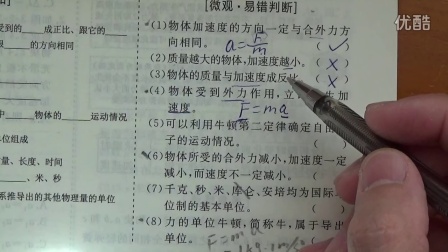 优酷
[微观·易错判断]
成正比、跟它的
(1)物体加速度的方向一定与合外力方
向相同。 a=F/m (✓)
(2)质量越大的物体,加速度越小。 (×)
(3)物体的质量与加速度成反比 (×)
(4)物体受到外力作用,立
加速度。 F=ma
的运动情况
(5)可以利用牛顿第二定律确定自由
子的运动情况。
(6)物体所受的合外力减小,加速度一定
减小,而速度不一定减小。
量、长度、时间
、米、秒
(7)千克、秒、米、库仑、安培均为国际
位制的基本单位。
系推导出的其他物理量的单位
(8)力的单位牛顿,简称牛,属于导出
单位。 F=ma